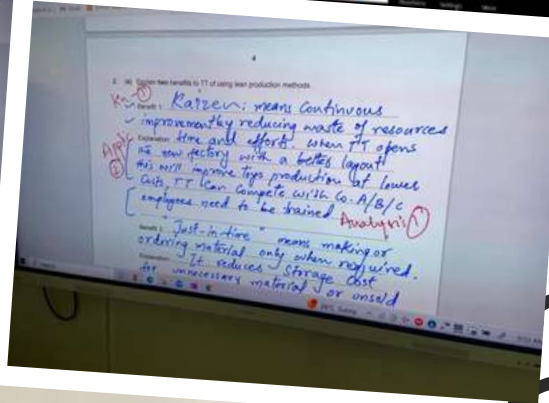 4
2 (a) Explain two benefits to TT of using lean production methods.
K ①
Benefit 1: Kaizen: means Continuous
improvement by reducing waste of resources
Explanation: time and efforts. When TT opens
the new factory with a better layout
this will improve Toys production at lower
Costs, TT Can Compete with Co. A/B/C
employees need to be trained
Appli ②
Analysis ①
Benefit 2: "Just-in-time" means making or
ordering material only when required.
Explanation: It reduces Storage Cost
for unnecessary material or unsold
Sunny